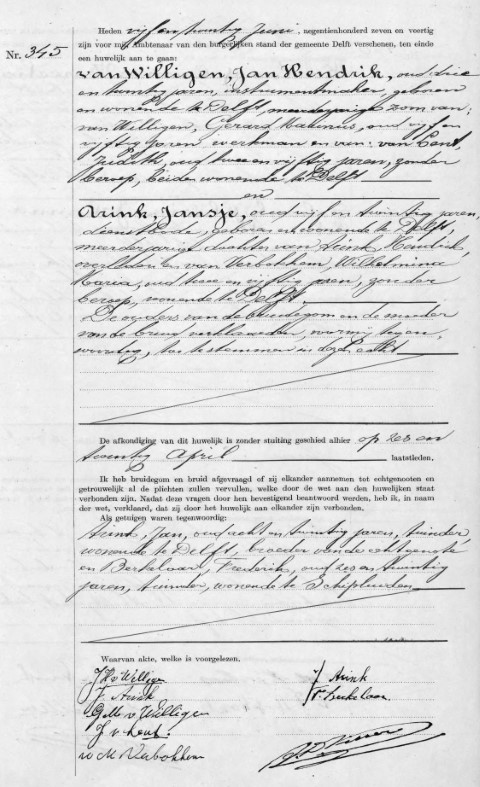 Nr. 345
Heden vijf en twintig Juni, negentienhonderd zeven en veertig
zijn voor mij, Ambtenaar van den burgerlijken stand der gemeente Delft verschenen, ten einde
een huwelijk aan te gaan:
van Willigen, Jan Hendrik, oud drie
en twintig jaren, instrumentmaker, geboren
en wonende te Delft, meerderjarige zoon van:
van Willigen, Gerard Marinus, oud vijf en
vijftig jaren, werkman en van: van Lent,
Judith, oud twee en vijftig jaren, zonder
beroep, beiden wonende te Delft
en
Arink, Jansje, oud vijf en twintig jaren,
dienstbode, geboren en wonende te Delft,
meerderjarige dochter van Arink, Hendrik,
overleden en van Verbokkem, Wilhelmina
Maria, oud twee en vijftig jaren, zonder
beroep, wonende te Delft.
De ouders van de bruidegom en de moeder
van de bruid verklaarden, voor mij tegen-
woordig, toe te stemmen in deze echt
De afkondiging van dit huwelijk is zonder stuiting geschied alhier op zes en
twintig April laatstleden.
Ik heb bruidegom en bruid afgevraagd of zij elkander aannemen tot echtgenooten en
getrouwelijk al de plichten zullen vervullen, welke door de wet aan den huwelijken staat
verbonden zijn. Nadat deze vragen door hen bevestigend beantwoord werden, heb ik, in naam
der wet, verklaard, dat zij door het huwelijk aan elkander zijn verbonden.
Als getuigen waren tegenwoordig:
Arink, Jan, oud acht en twintig jaren, tuinder,
wonende te Delft, broeder van de echtgenote
en Berkelaar, Frederik, oud zes en twintig
jaren, tuinder, wonende te Schipluiden
Waarvan akte, welke is voorgelezen.
J H v Willigen
J. Arink
J. Arink
F. Berkelaar
G. M. v Willigen
J v Lent
W M Verbokkem